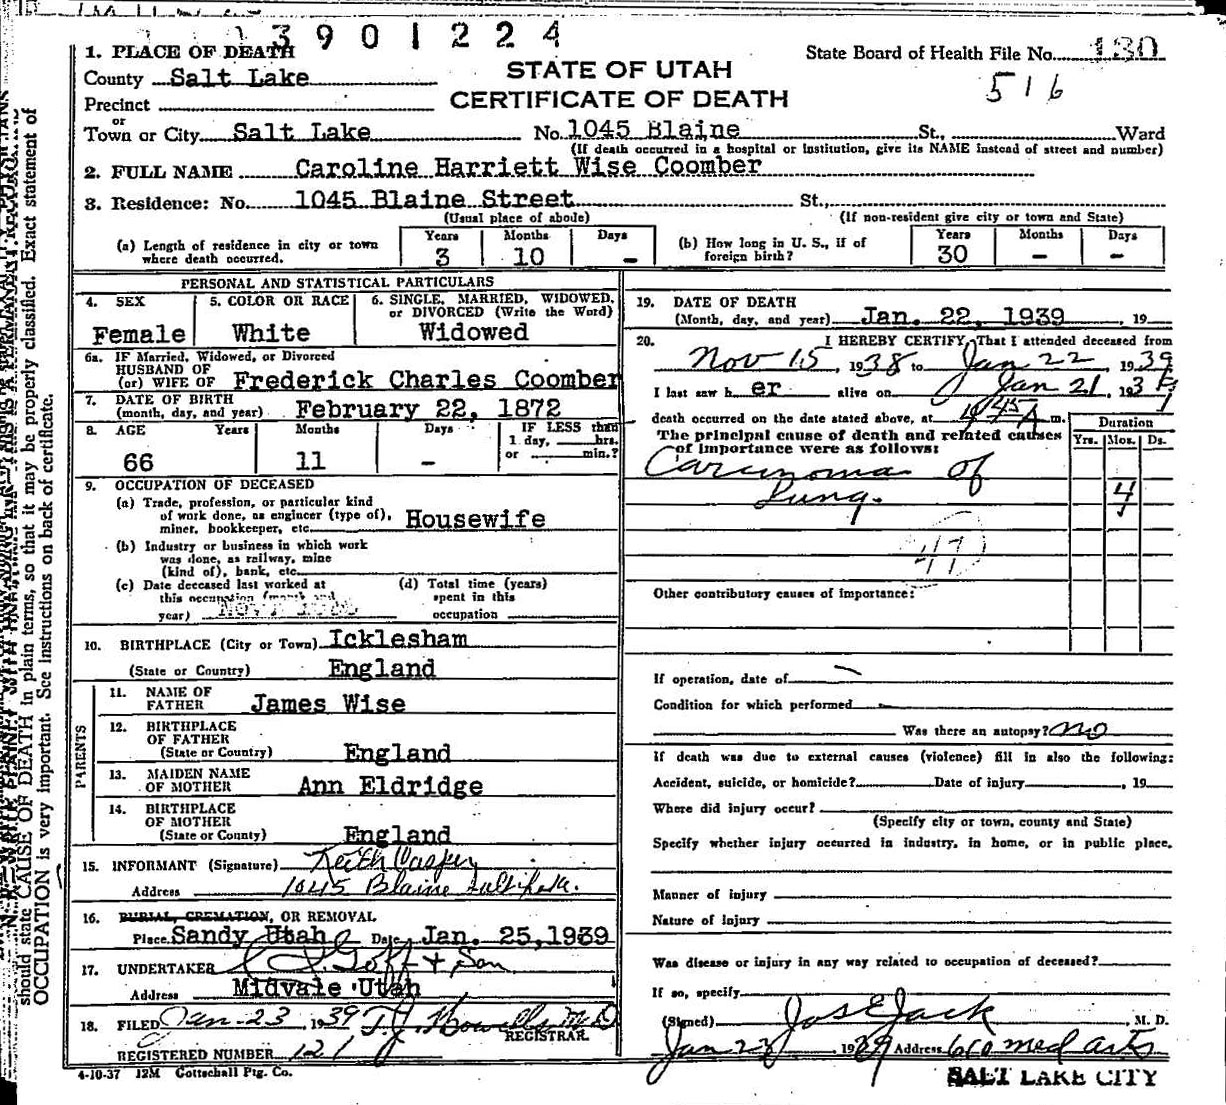 3901224
1. PLACE OF DEATH
State Board of Health File No. 130
County Salt Lake
STATE OF UTAH
516
Precinct
CERTIFICATE OF DEATH
or
Town or City Salt Lake No. 1045 Blaine St., Ward
(If death occurred in a hospital or institution, give its NAME instead of street and number)
2. FULL NAME Caroline Harriett Wise Coomber
3. Residence: No. 1045 Blaine Street St.,
(Usual place of abode) (If non-resident give city or town and State)
(a) Length of residence in city or town where death occurred. Years 3 Months 10 Days -
(b) How long in U. S., if of foreign birth? Years 30 Months - Days -
PERSONAL AND STATISTICAL PARTICULARS
4. SEX Female
5. COLOR OR RACE White
6. SINGLE, MARRIED, WIDOWED, or DIVORCED (Write the Word) Widowed
6a. IF Married, Widowed, or Divorced
HUSBAND OF
(or) WIFE OF Frederick Charles Coomber
7. DATE OF BIRTH
(month, day, and year) February 22, 1872
8. AGE Years 66 Months 11 Days - IF LESS than 1 day, hrs. or min.?
9. OCCUPATION OF DECEASED
(a) Trade, profession, or particular kind
of work done, as engineer (type of),
miner, bookkeeper, etc. Housewife
(b) Industry or business in which work
was done, as railway, mine
(kind of), bank, etc.
(c) Date deceased last worked at
this occupation (month and
year)
(d) Total time (years)
spent in this
occupation
10. BIRTHPLACE (City or Town) Icklesham
(State or Country) England
PARENTS
11. NAME OF
FATHER James Wise
12. BIRTHPLACE
OF FATHER
(State or Country) England
13. MAIDEN NAME
OF MOTHER Ann Eldridge
14. BIRTHPLACE
OF MOTHER
(State or County) England
15. INFORMANT (Signature) Keith Vasper
Address 1045 Blaine
16. BURIAL, CREMATION, OR REMOVAL
Place Sandy Utah Date Jan. 25, 1939
17. UNDERTAKER Goff + Son
Address Midvale Utah
18. FILED Jan-23 1939 T. J. Howells M D
REGISTRAR.
REGISTERED NUMBER 121
4-10-37 12M Gottschall Ptg. Co.
19. DATE OF DEATH
(Month, day, and year) Jan. 22, 1939, 19
20. I HEREBY CERTIFY, That I attended deceased from
Nov 15, 1938 to Jan 22, 1939
I last saw her alive on Jan 21, 193
death occurred on the date stated above, at A m.
The principal cause of death and related causes
of importance were as follows:
Duration
Yrs. Mos. Ds.
Carcinoma of
Lung. 4
47
Other contributory causes of importance:
If operation, date of
Condition for which performed
Was there an autopsy? no
If death was due to external causes (violence) fill in also the following:
Accident, suicide, or homicide? Date of injury, 19
Where did injury occur?
(Specify city or town, county and State)
Specify whether injury occurred in industry, in home, or in public place.
Manner of injury
Nature of Injury
Was disease or injury in any way related to occupation of deceased?
If so, specify
(Signed) Jos E Jack, M. D.
Jan 23, 1939 Address 610 Med arts
SALT LAKE CITY
should state CAUSE OF DEATH in plain terms, so that it may be properly classified. Exact statement of
OCCUPATION is very important. See instructions on back of certificate.